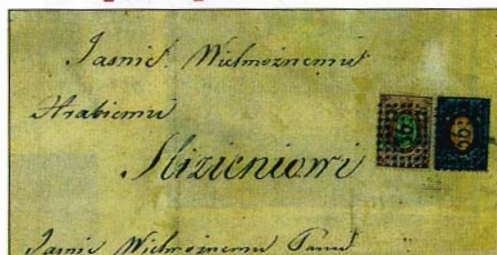 Jasnie Wielmożnemu
Hrabiemu
Slizieniowi
Jasnie Wielmożnemu Panu